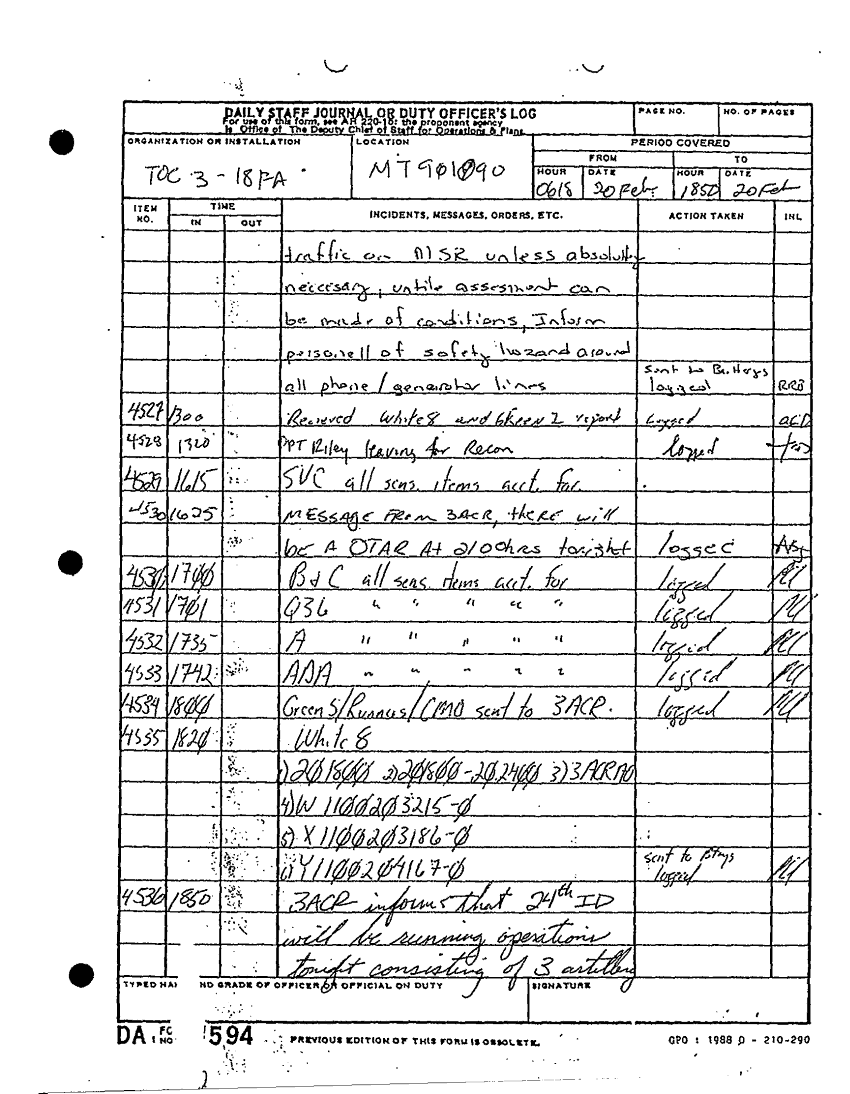 DAILY STAFF JOURNAL OR DUTY OFFICER'S LOG
For use of this form, see AR 220-15; the proponent agency
is Office of The Deputy Chief of Staff for Operations & Plans.
PAGE NO.
NO. OF PAGES
ORGANIZATION OR INSTALLATION
TOC 3-18FA
LOCATION
MT901090
PERIOD COVERED
FROM TO
HOUR DATE HOUR DATE
0618 20 Feb 1850 20 Feb
ITEM NO. TIME IN OUT INCIDENTS, MESSAGES, ORDERS, ETC. ACTION TAKEN INL
traffic on MSR unless absolutly
neccesary, untile assesment can
be made of conditions, Inform
personell of safety hazard around
all phone/generator lines sent to Batterys logged RRB
4527 1300 Recieved White 8 and Green 2 report Logged
4528 1320 CPT Riley leaving for Recon logged
4529 1615 SVC all sens. items acct. for.
4530 1625 MESSAGE FROM 3ACR, tHERE will
bE A OTAR At 2100hrs tonight logged
4530 17ØØ B & C all sens. items acct. for logged
4531 17Ø1 Q36 " " " " " logged
4532 1735 A " " " " " logged
4533 1742 ADA " " " " " logged
4534 18ØØ Green 5/Runners/CMO sent to 3ACR. logged
4535 182Ø White 8
1) 2Ø18ØØ 2) 2Ø18ØØ-2Ø24ØØ 3) 3ACR
4) W 11ØØ2Ø3215-Ø
5) X 11ØØ2Ø3186-Ø
6) Y 11ØØ2Ø4167-Ø sent to Btrys logged
4536 1850 3ACR informs that 24th ID
will be running operations
tonight consisting of 3 artillery
TYPED NA ND GRADE OF OFFICER OR OFFICIAL ON DUTY
SIGNATURE
DA 1594 PREVIOUS EDITION OF THIS FORM IS OBSOLETE. GPO : 1988 0 - 210-290